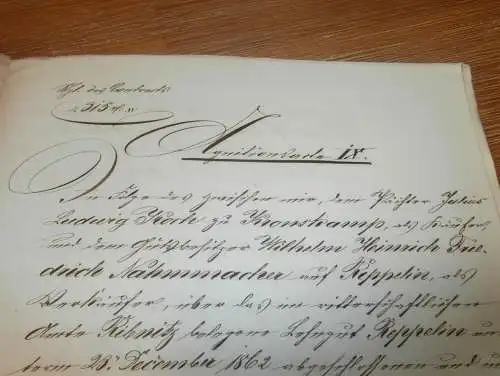 Agnitionsacte IX.
In Folge des zwischen mir, dem Pächter Julius
Ludwig Koch zu Kronskamp, als Käufer
und dem Gutsbesitzer Wilhelm Heinrich Frie-
drich Nahmmacher auf Reppelin, als
Verkäufer, über das im ritterschaftlichen
Amte Ribnitz belegene Lehngut Reppelin un-
term 28t December 1862 abgeschlossenen und